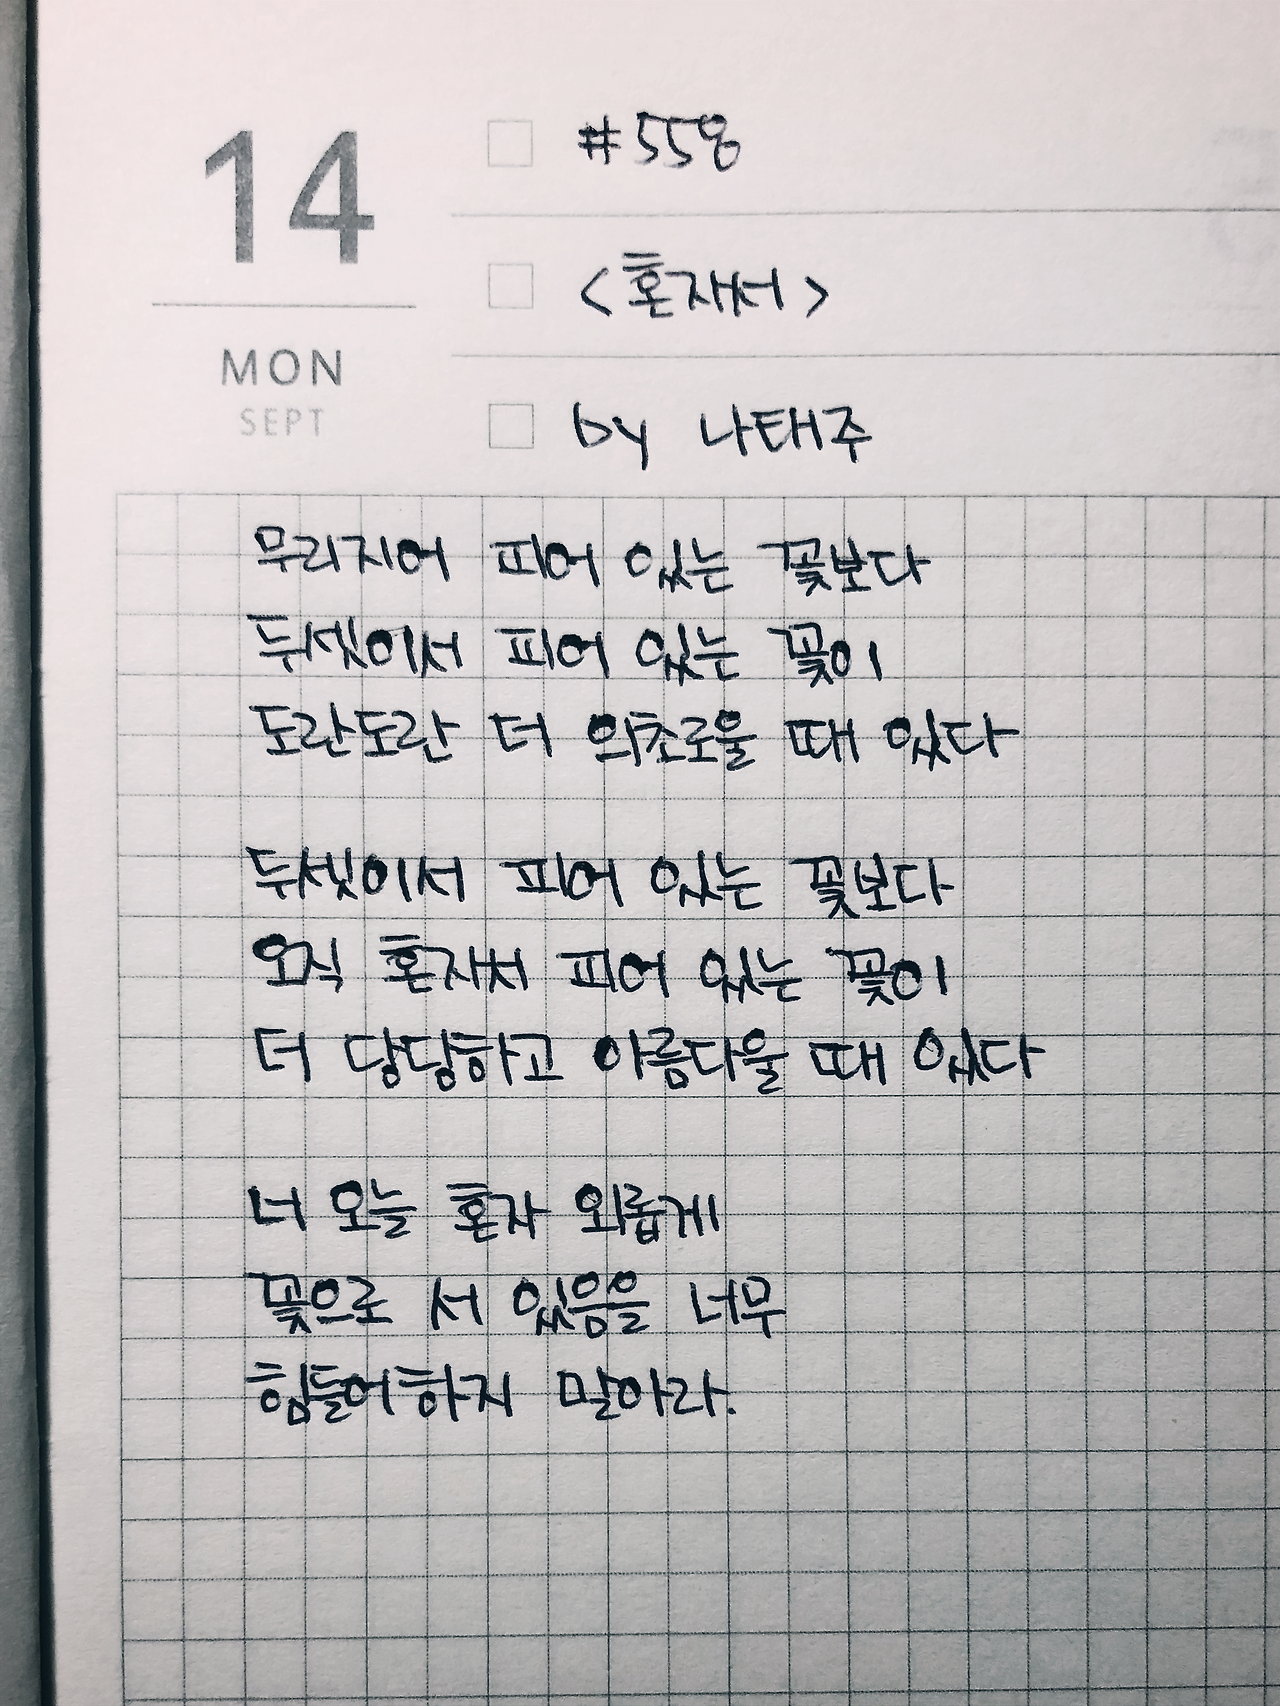 14
MON
SEPT
#558
<혼자서>
by 나태주
무리지어 피어 있는 꽃보다
두셋이서 피어 있는 꽃이
도란도란 더 의초로울 때 있다
두셋이서 피어 있는 꽃보다
오직 혼자서 피어 있는 꽃이
더 당당하고 아름다울 때 있다
너 오늘 혼자 외롭게
꽃으로 서 있음을 너무
힘들어하지 말아라.